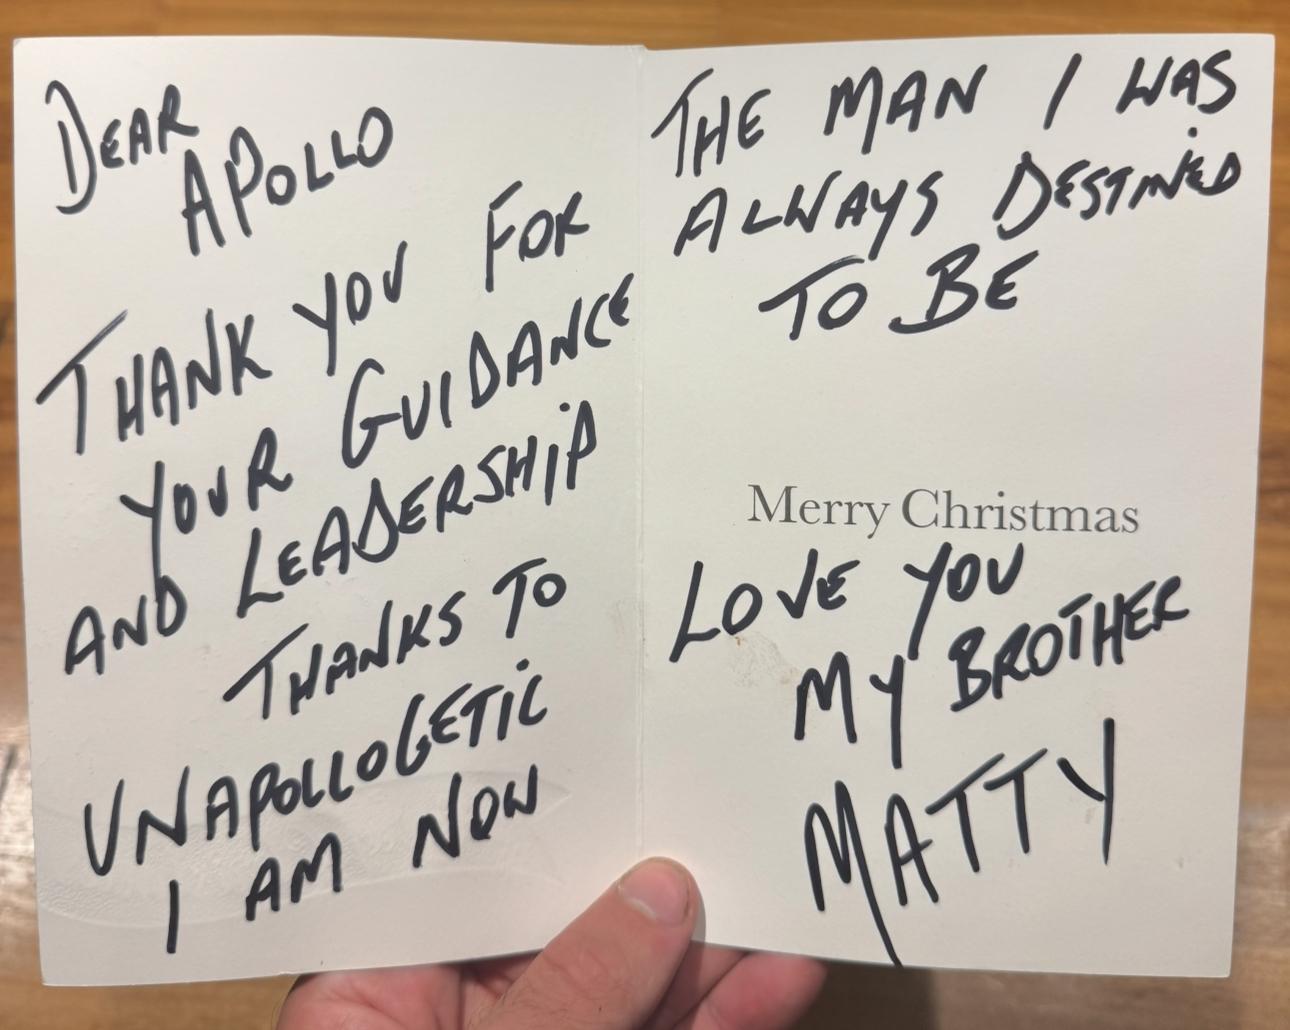 DEAR
APOLLO
THANK YOU FOR
YOUR GUIDANCE
AND LEADERSHIP
THANKS TO
UNAPOLLOGETIC
I AM NOW
THE MAN I WAS
ALWAYS DESTINED
TO BE
Merry Christmas
LOVE YOU
MY BROTHER
MATTY